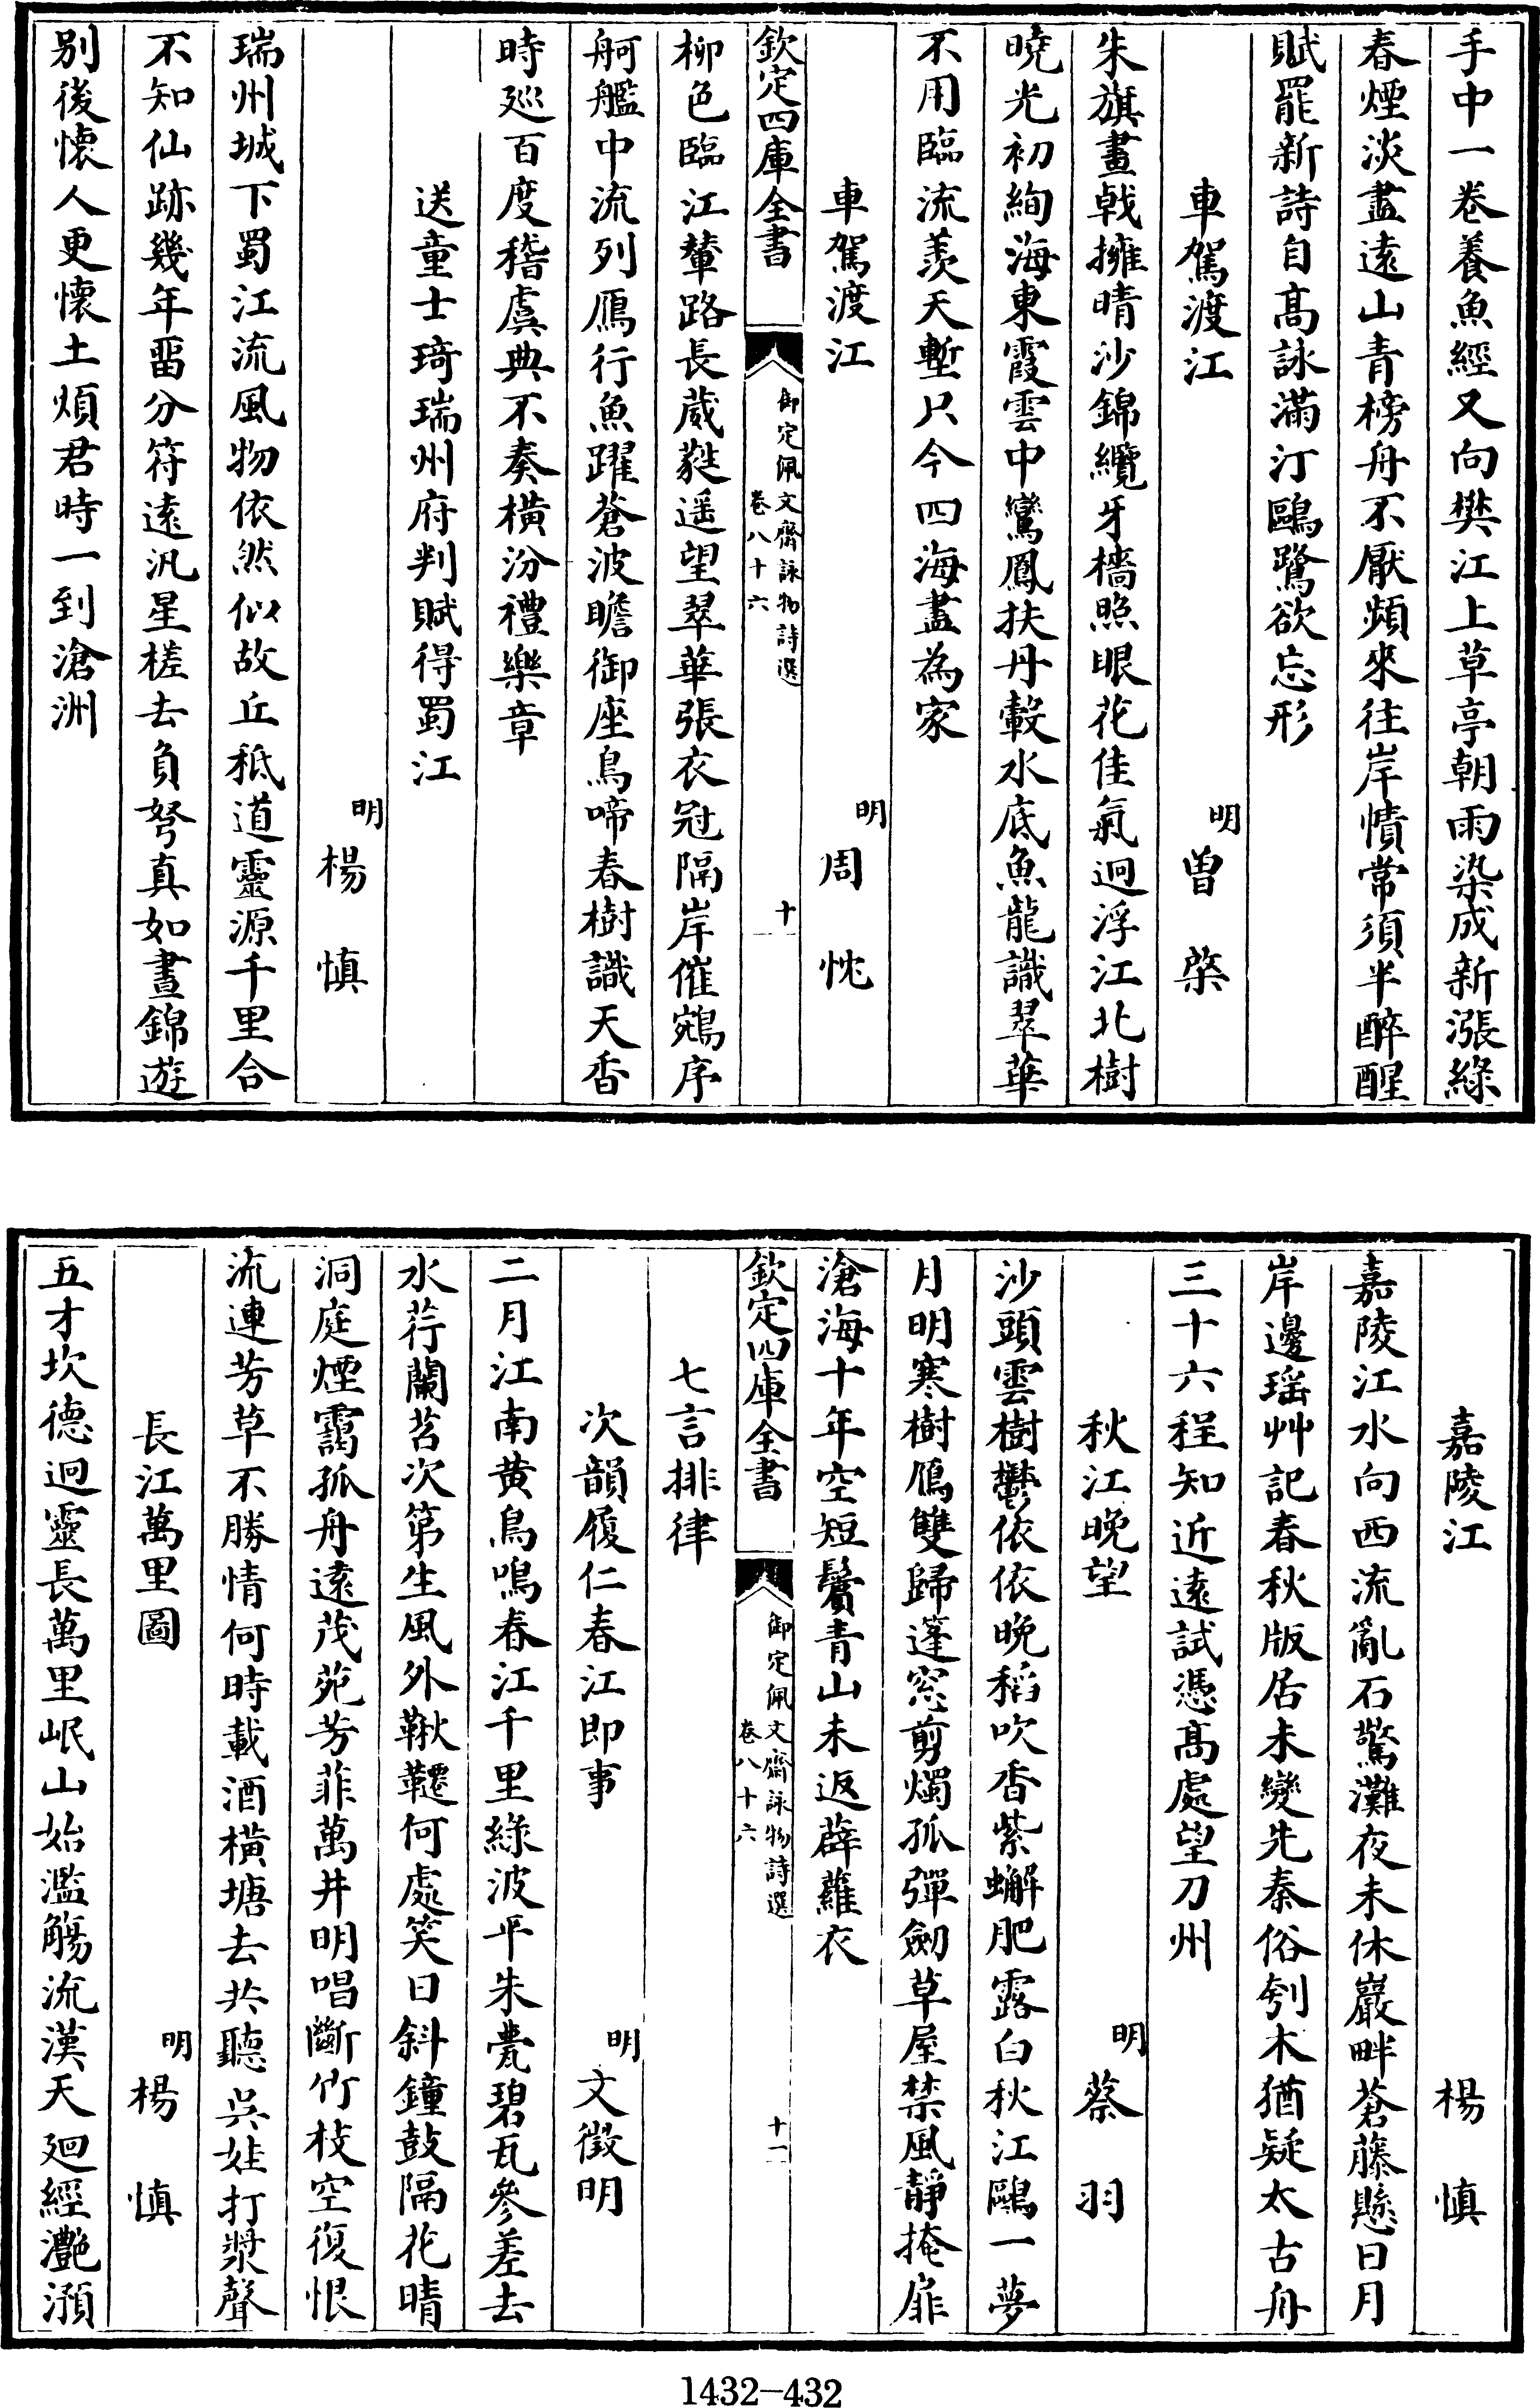 手中一卷養魚經又向樊江上草亭朝雨染成新漲綠
春煙淡盡遠山青榜舟不厭頻來往岸幘常須半醉醒
賦罷新詩自高詠滿汀鷗鷺欲忘形
車駕渡江
明曾棨
朱旗畫戟擁晴沙錦纜牙檣照眼花佳氣迥浮江北樹
曉光初絢海東霞雲中鸞鳳扶丹轂水底魚龍識翠華
不用臨流羨天塹只今四海盡為家
車駕渡江
明周忱
欽定四庫全書
御定佩文齋詠物詩選
卷八十六
十
柳色臨江輦路長葳蕤遥望翠華張衣冠隔岸催鵷序
舸艦中流列鴈行魚躍蒼波瞻御座鳥啼春樹識天香
時廵百度稽虞典不奏橫汾禮樂章
送童士琦瑞州府判賦得蜀江
明楊慎
瑞州城下蜀江流風物依然似故丘秪道靈源千里合
不知仙跡幾年留分符遠汎星槎去負弩真如晝錦遊
別後懷人更懷土煩君時一到滄洲
嘉陵江
楊慎
嘉陵江水向西流亂石驚灘夜未休巖畔蒼藤懸日月
岸邊瑶艸記春秋版居未變先秦俗刳木猶疑太古舟
三十六程知近遠試憑高處望刀州
秋江晚望
明蔡羽
沙頭雲樹鬱依依晚稻吹香紫蠏肥露白秋江鷗一夢
月明寒樹鴈雙歸篷窓剪燭孤彈劒草屋禁風靜掩扉
滄海十年空短鬢青山未返薜蘿衣
欽定四庫全書
御定佩文齋詠物詩選
卷八十六
十一
七言排律
次韻履仁春江即事
明文徵明
二月江南黄鳥鳴春江千里綠波平朱甍碧瓦參差去
水荇蘭苕次第生風外鞦韆何處笑日斜鐘鼓隔花晴
洞庭煙靄孤舟遠茂苑芳菲萬井明唱斷竹枝空復恨
流連芳草不勝情何時載酒橫塘去共聽吳娃打槳聲
長江萬里圖
明楊慎
五才坎德迥靈長萬里岷山始濫觴流漢天廻經灔澦
1432-432